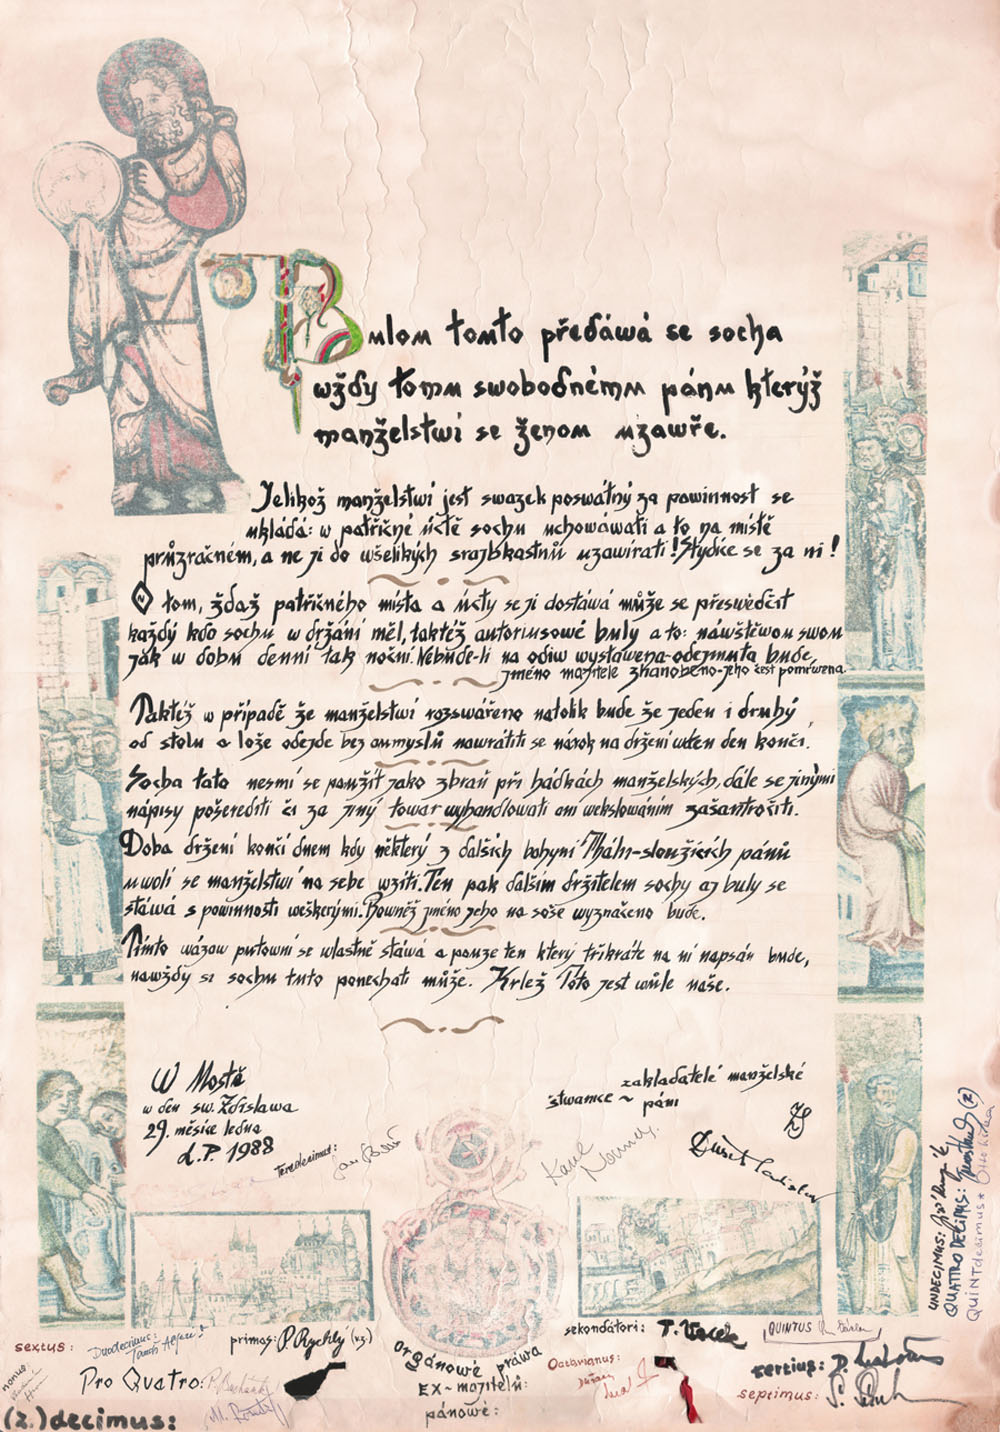 Bulou touto předáwá se socha
wždy tomu swobodnému pánu kterýž
manželstwí se ženou uzawře.
Jelikož manželstwí jest swazek poswátný za powinnost se
ukládá: w patřičné úctě sochu uchowáwati a to na místě
průzračném, a ne ji do wšelikých srajbkastnů uzawírati! Stydíce se za ni!
O tom, ždaž patřičného místa a úcty se jí dostáwá může se přeswědčit
každý kdo sochu w držání měl, taktéž autoriusowé buly a to: náwštěwou swou
jak w dobu denní tak noční. Nebude-li na odiw wystawena-odejmuta bude,
jméno majitele zhanobeno-jeho čest pomrwena.
Taktéž w případě že manželstwí rozswářeno natolik bude že jeden i druhý
od stolu a lože odejde bez aumyslů nawrátiti se nárok na držení wten den končí.
Socha tato nesmí se použít jako zbraň při hádkách manželských, dále se jinými
nápisy pošerediti či za jiný towar wyhandlowati ani wekslowáním zašantročiti.
Doba držení končí dnem kdy některý z dalších bohyni Tháli-sloužících pánů
uwolí se manželstwí na sebe wzíti. Ten pak dalším držitelem sochy aj buly se
stáwá s powinností weškerými. Rowněž jméno jeho na soše wyznačeno bude.
Tímto wázaw putowní se wlastně stáwá a pouze ten který třikráte na ní napsán bude,
nawždy si sochu tuto ponechati může. Krlež Toto jest wůle naše.
W Mostě
w den sw. Zdislawa
29. měsíce ledna
L.P. 1988
zakladatelé manželské
štwanice ~ páni
Terdecimus:
Karel
Dušek Ladislav
UNDECIMUS:
QUATTRO DECIMUS: (z)
QUINTdecimus*
sextus:
Duodecimus:
primas: P. Rychlý (vz)
sekondátoři: T.
QUINTUS
nonus:
Pro Quatro:
Orgánowé práwa
EX-majitelů:
pánowé:
Octavianus:
tertius: D.
septimus: S.
(z.) decimus: